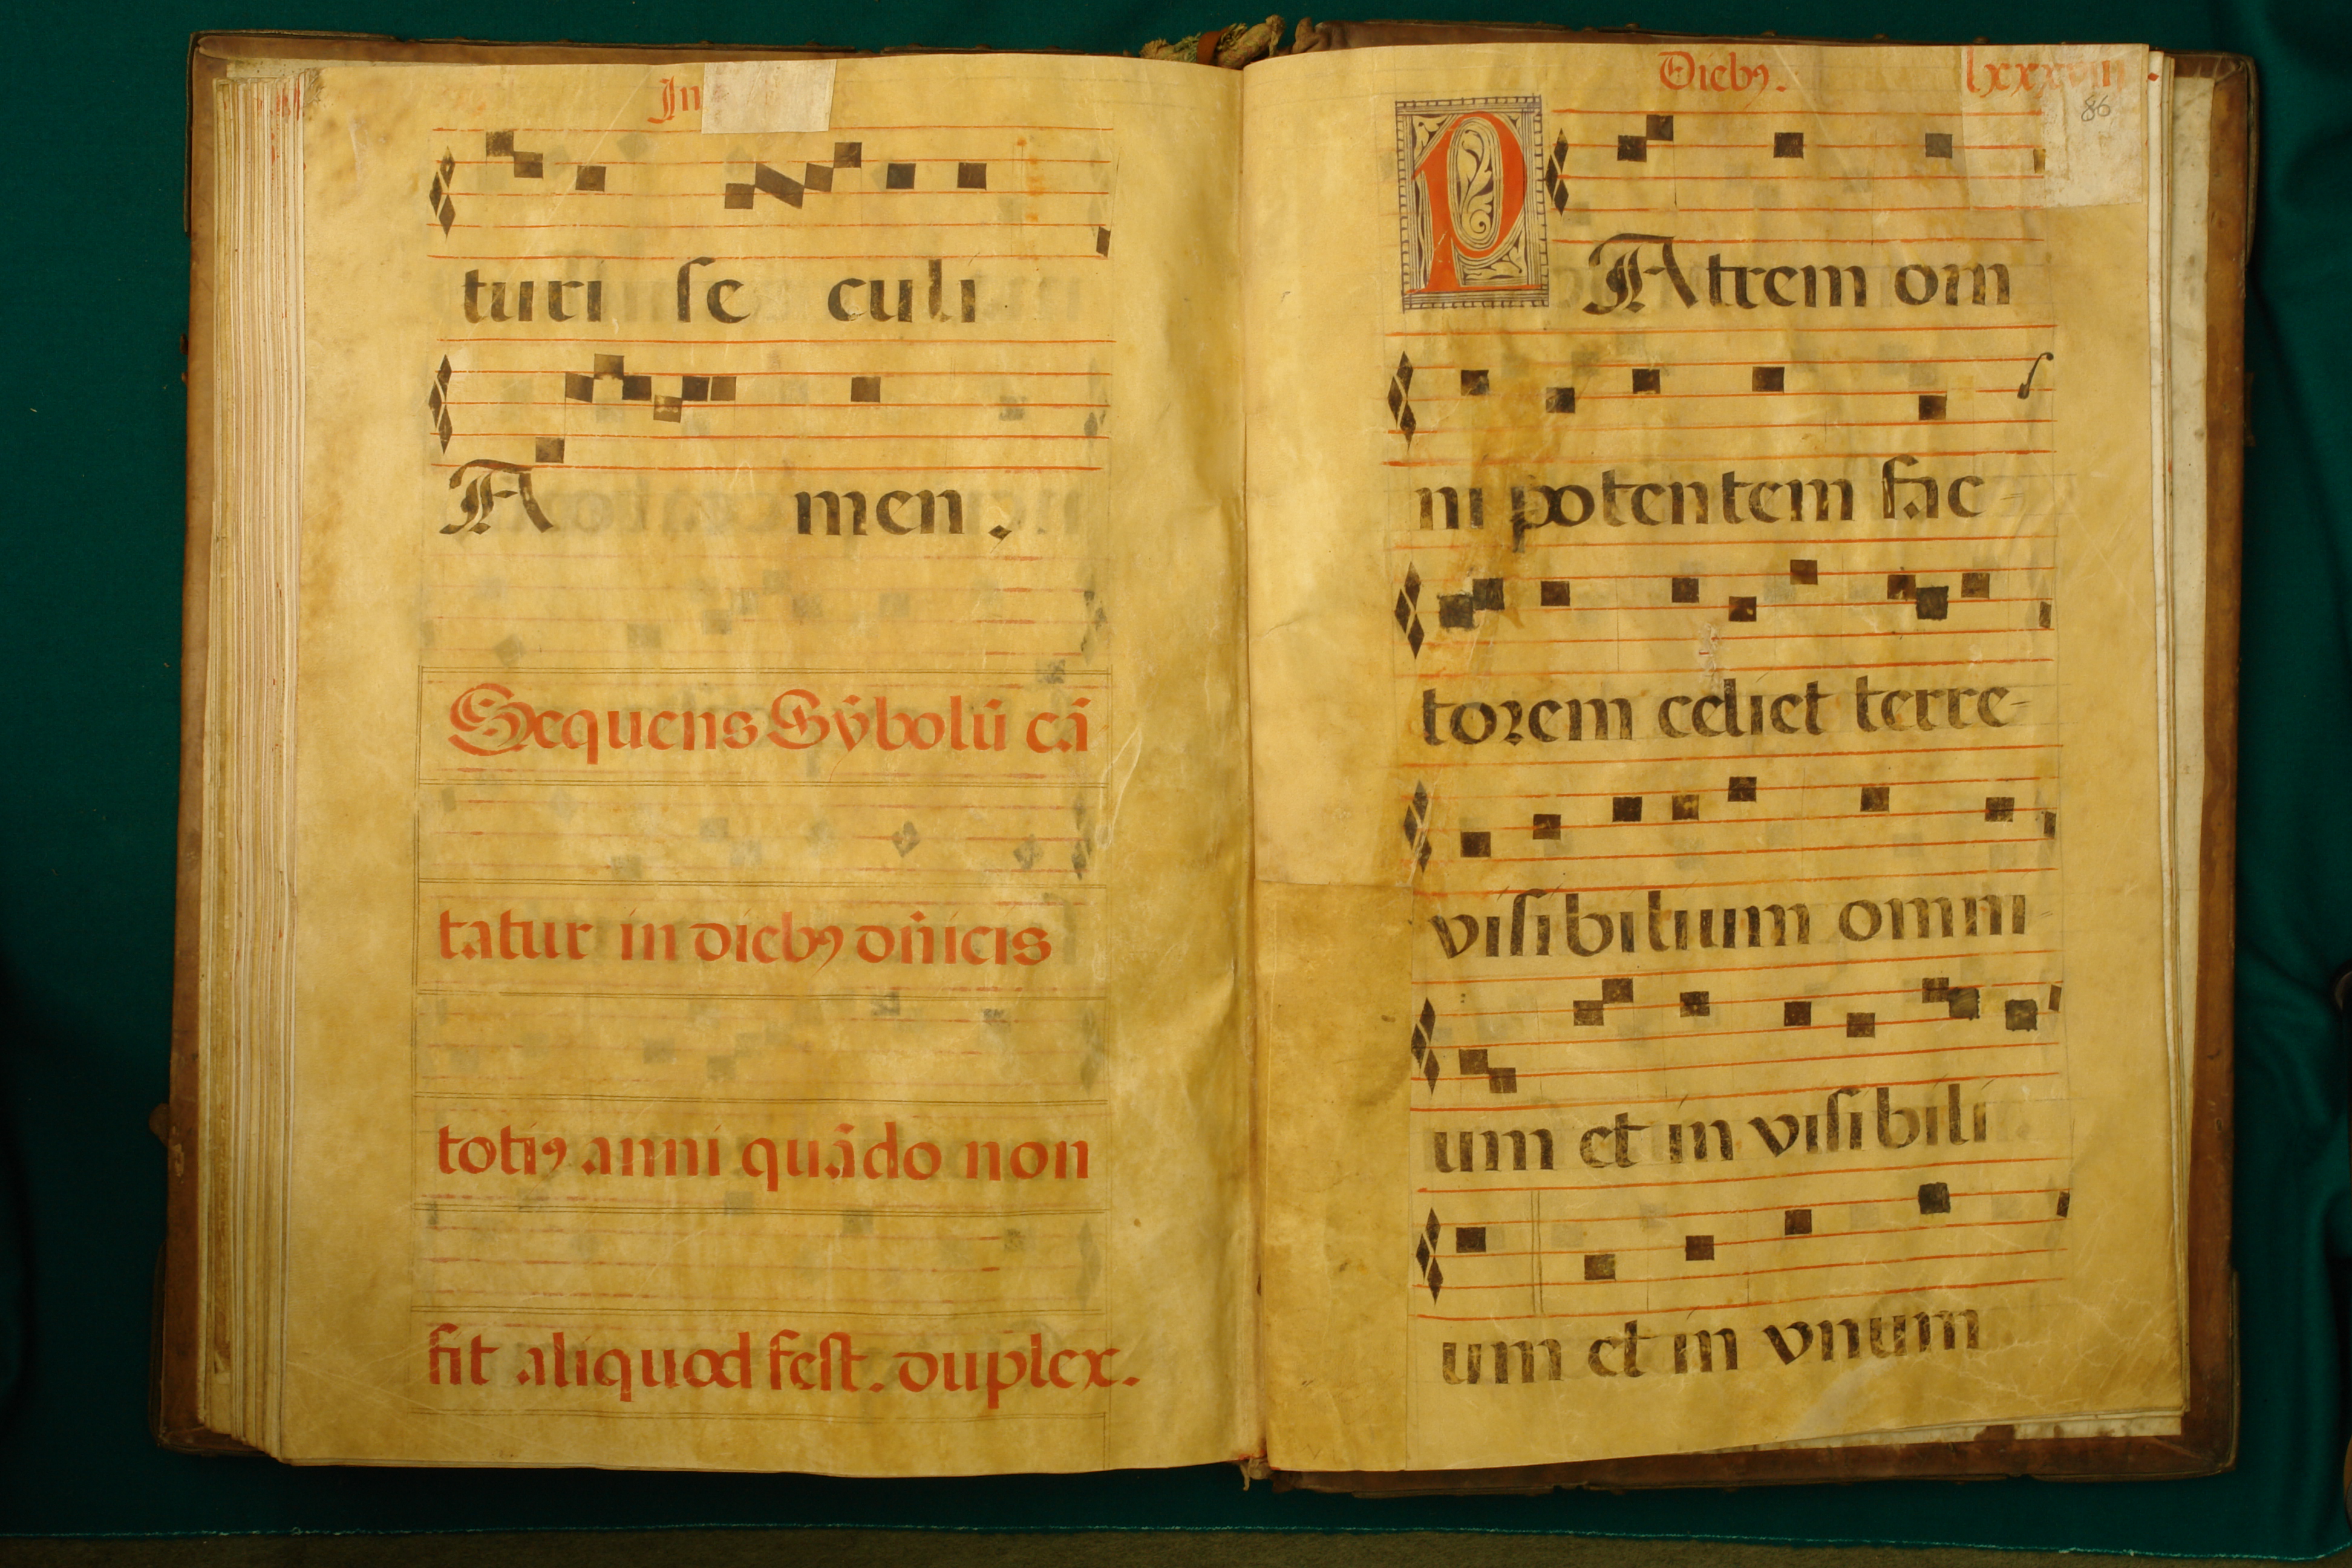 In
turi se culi
Amen.
Sequens Sy̓bolū cā
tatur in diebꝰ dñicis
totiꝰ anni quādo non
fit aliquod fest. duplex.
Diebꝰ.
86
PAtrem om
ni potentem fac-
torem celi et terre-
visibilium omni
um et in visibili
um et in vnum